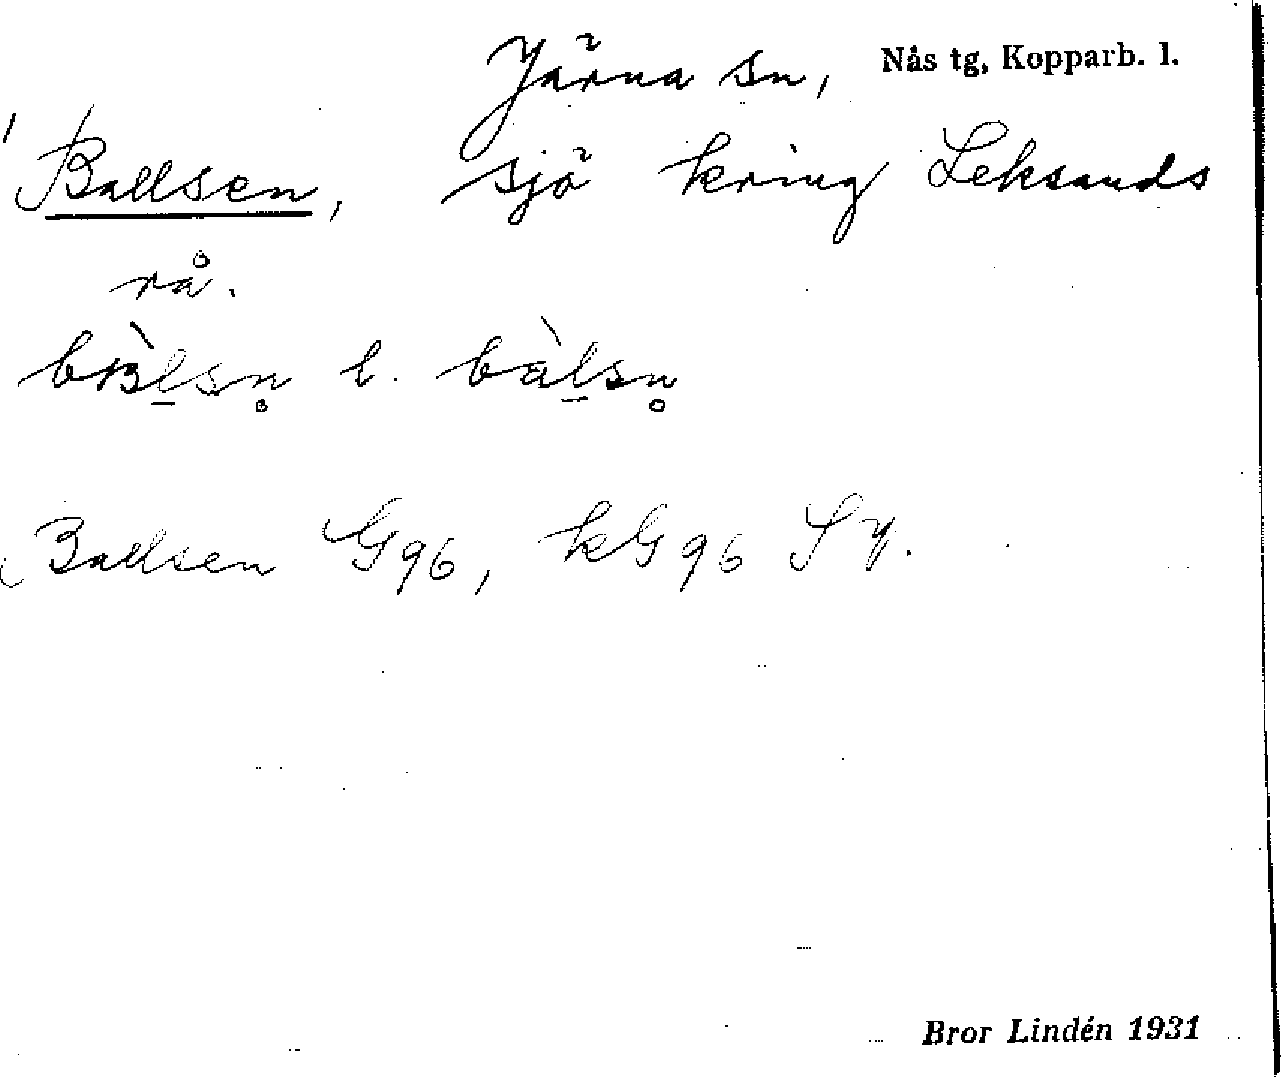 Järna sn, Nås tg, Kopparb. l.
Ballsen, sjö kring Leksands
rå.
l. bàl̠sn̥
Ballsen G96, kG96 SV.
Bror Lindén 1931